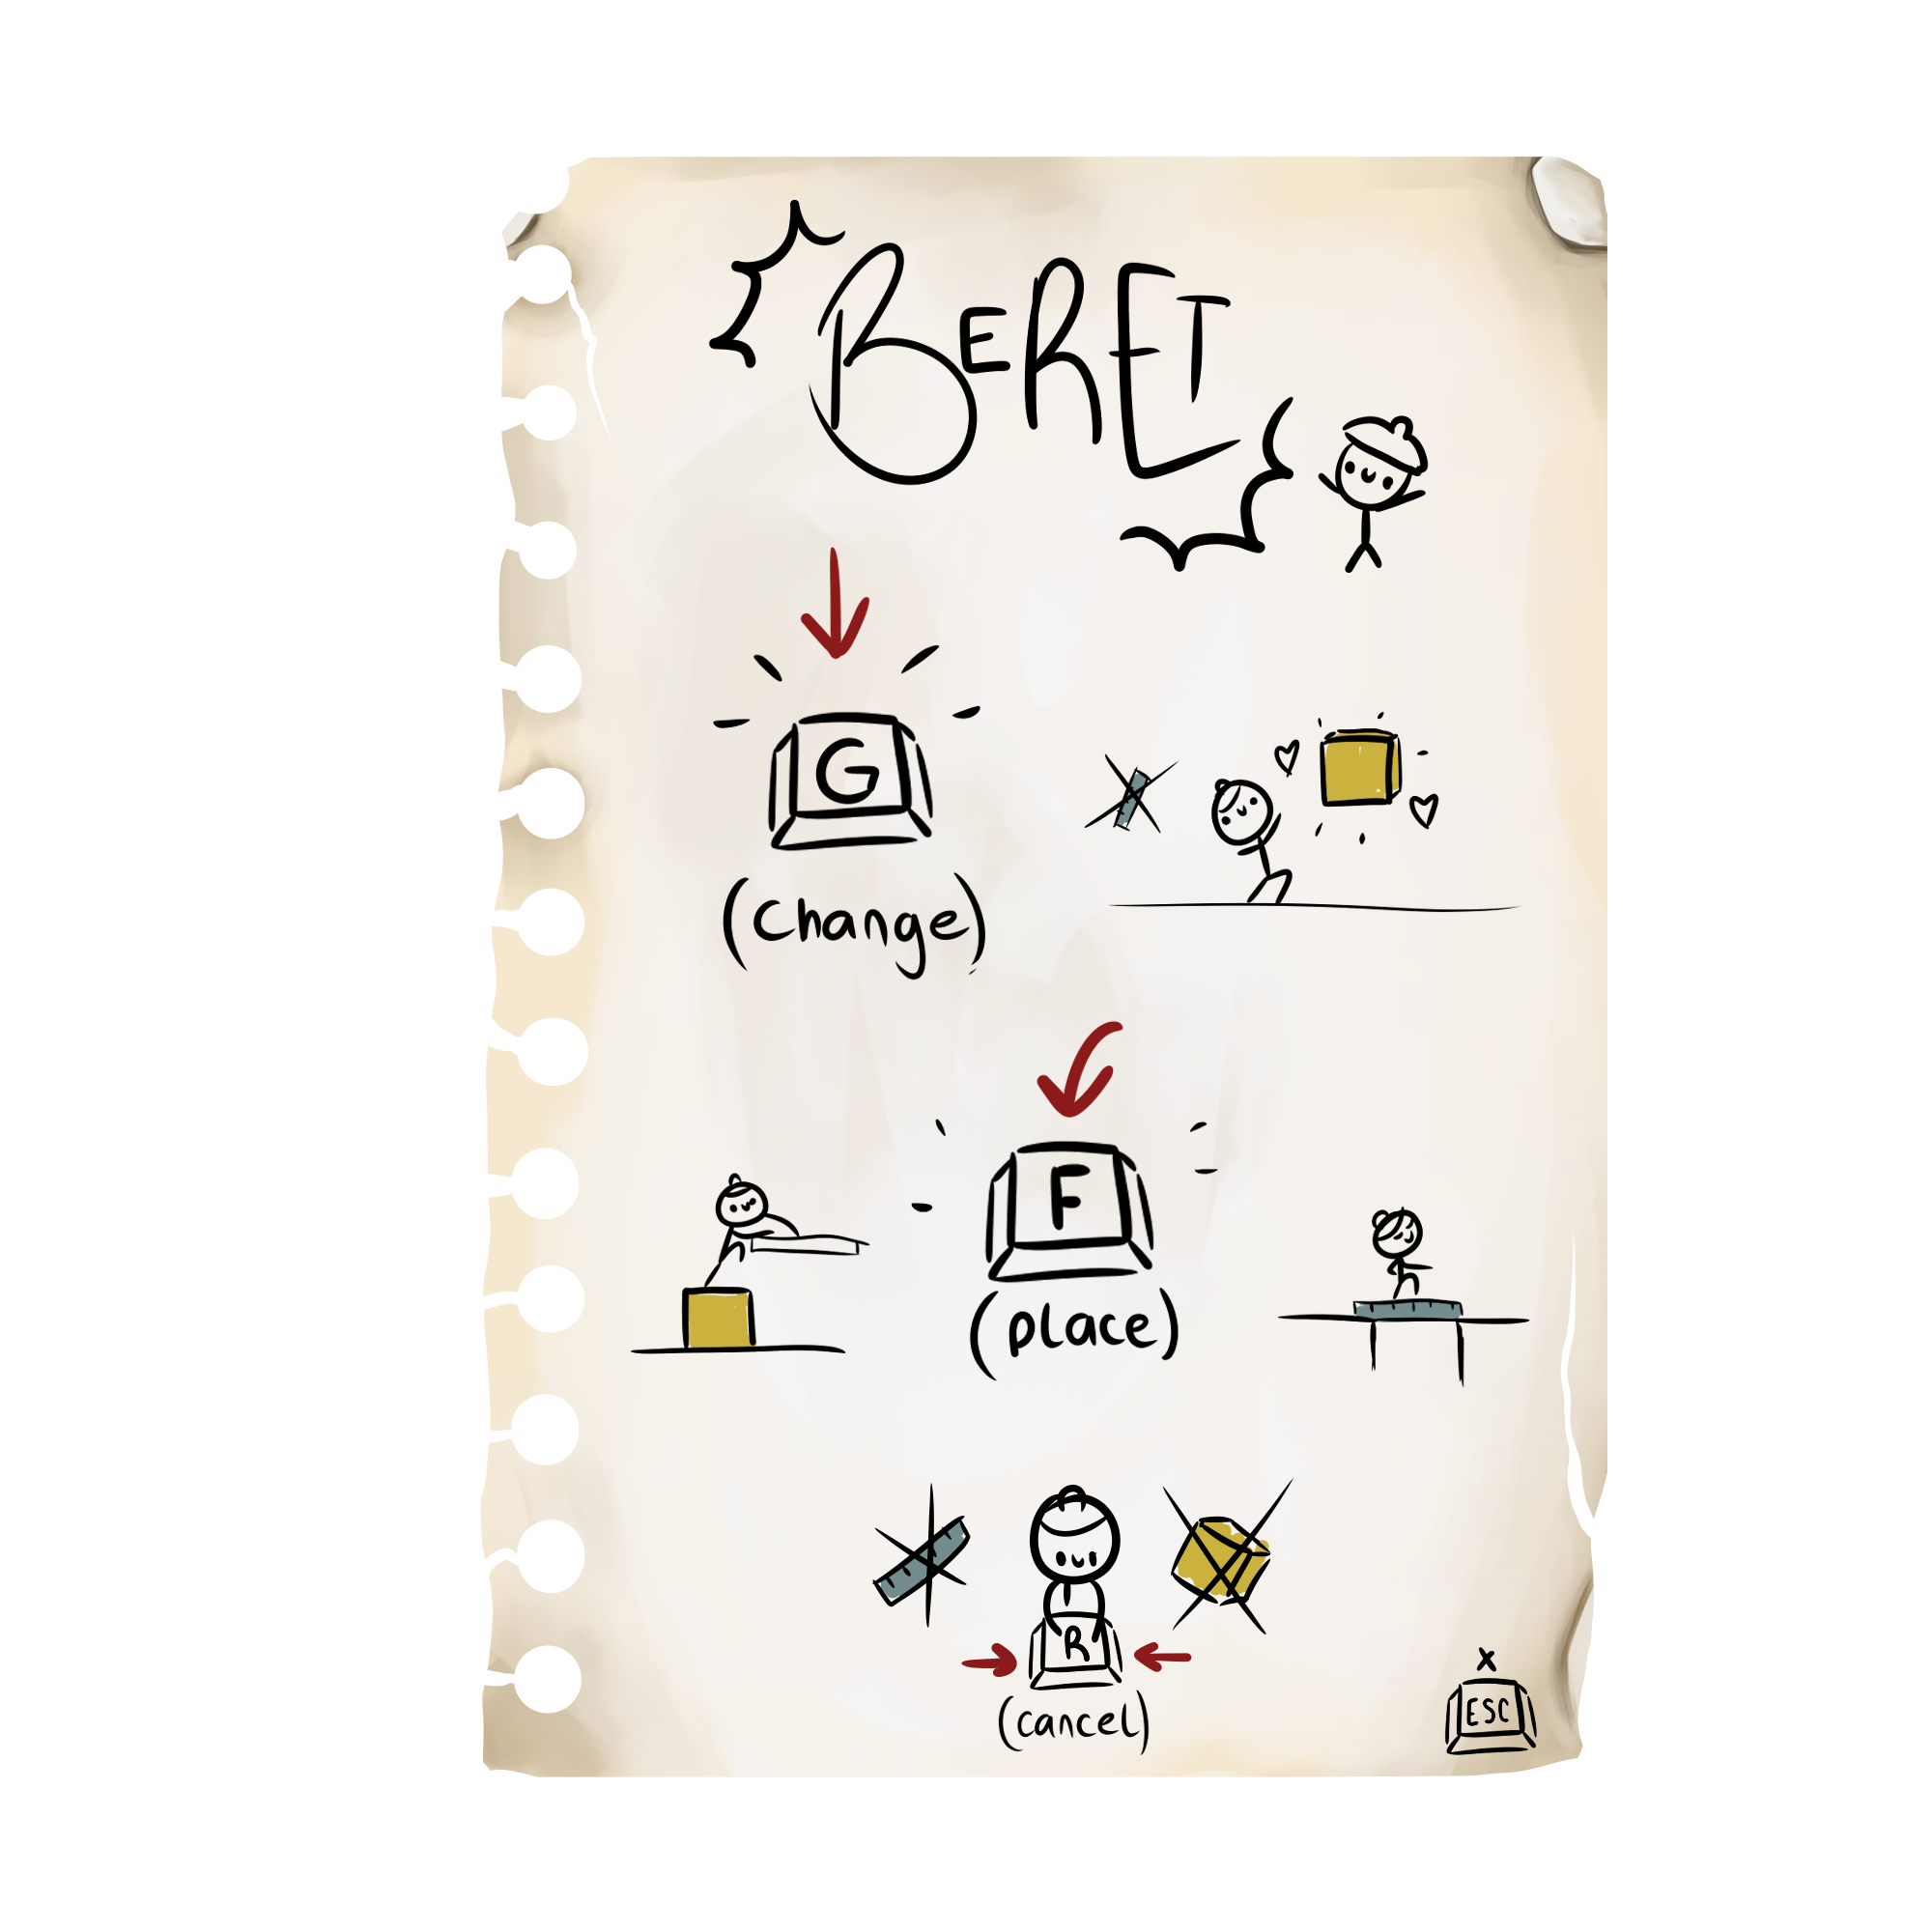 BERET
G
(change)
F
(place)
R
(cancel)
x
ESC